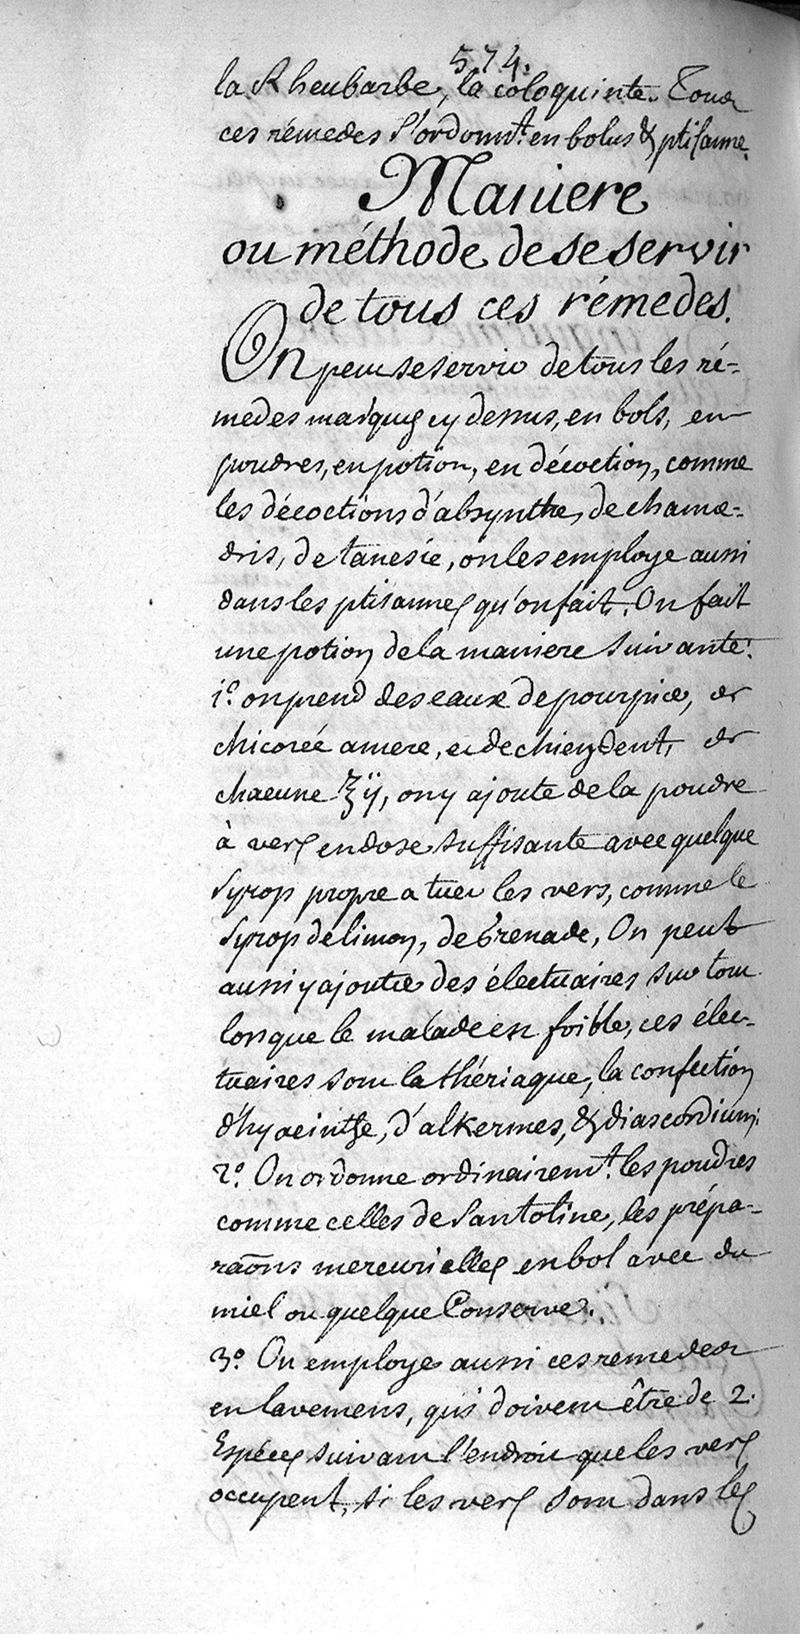 574.
la Rheubarbe, la coloquinte. Tous
ces rémedes s'ordonn.t en bolus & ptisanne.
Maniere
ou méthode de se servir
de tous ces rémedes.
On peut se servir de tous les ré-
medes marqués cy dessus, en bols, en
poudres, en potion, en décoction, comme
les décoctions d'absynthe, de chamæ-
dris, de tanesie, on les employe aussi
dans les ptisannes qu'on fait. On fait
une potion de la maniere suivante:
1.° on prend des eaux de pourpier, de
chicorée amere, et de chiendent, de
chacune ℥ij, on y ajoute de la poudre
à vers en dose suffisante avec quelque
syrop propre a tuer les vers, comme le
syrop de limon, de Grenade, On peut
aussi y ajouter des électuaires sur tout
lorsque le malade est foible, ces élec-
tuaires sont la thériaque, la confection
d'hyacinthe, d'alkermes, & diascordium.
2.° On ordonne ordinairem.t les poudres
comme celles de Santoline, les prépa-
raõns mercurielles en bol avec du
miel ou quelque Conserve.
3.° On employe aussi ces remedes
en lavemens, qui doivent être de 2.
Espéces suivant l'endroit que les vers
occupent, si les vers sont dans les